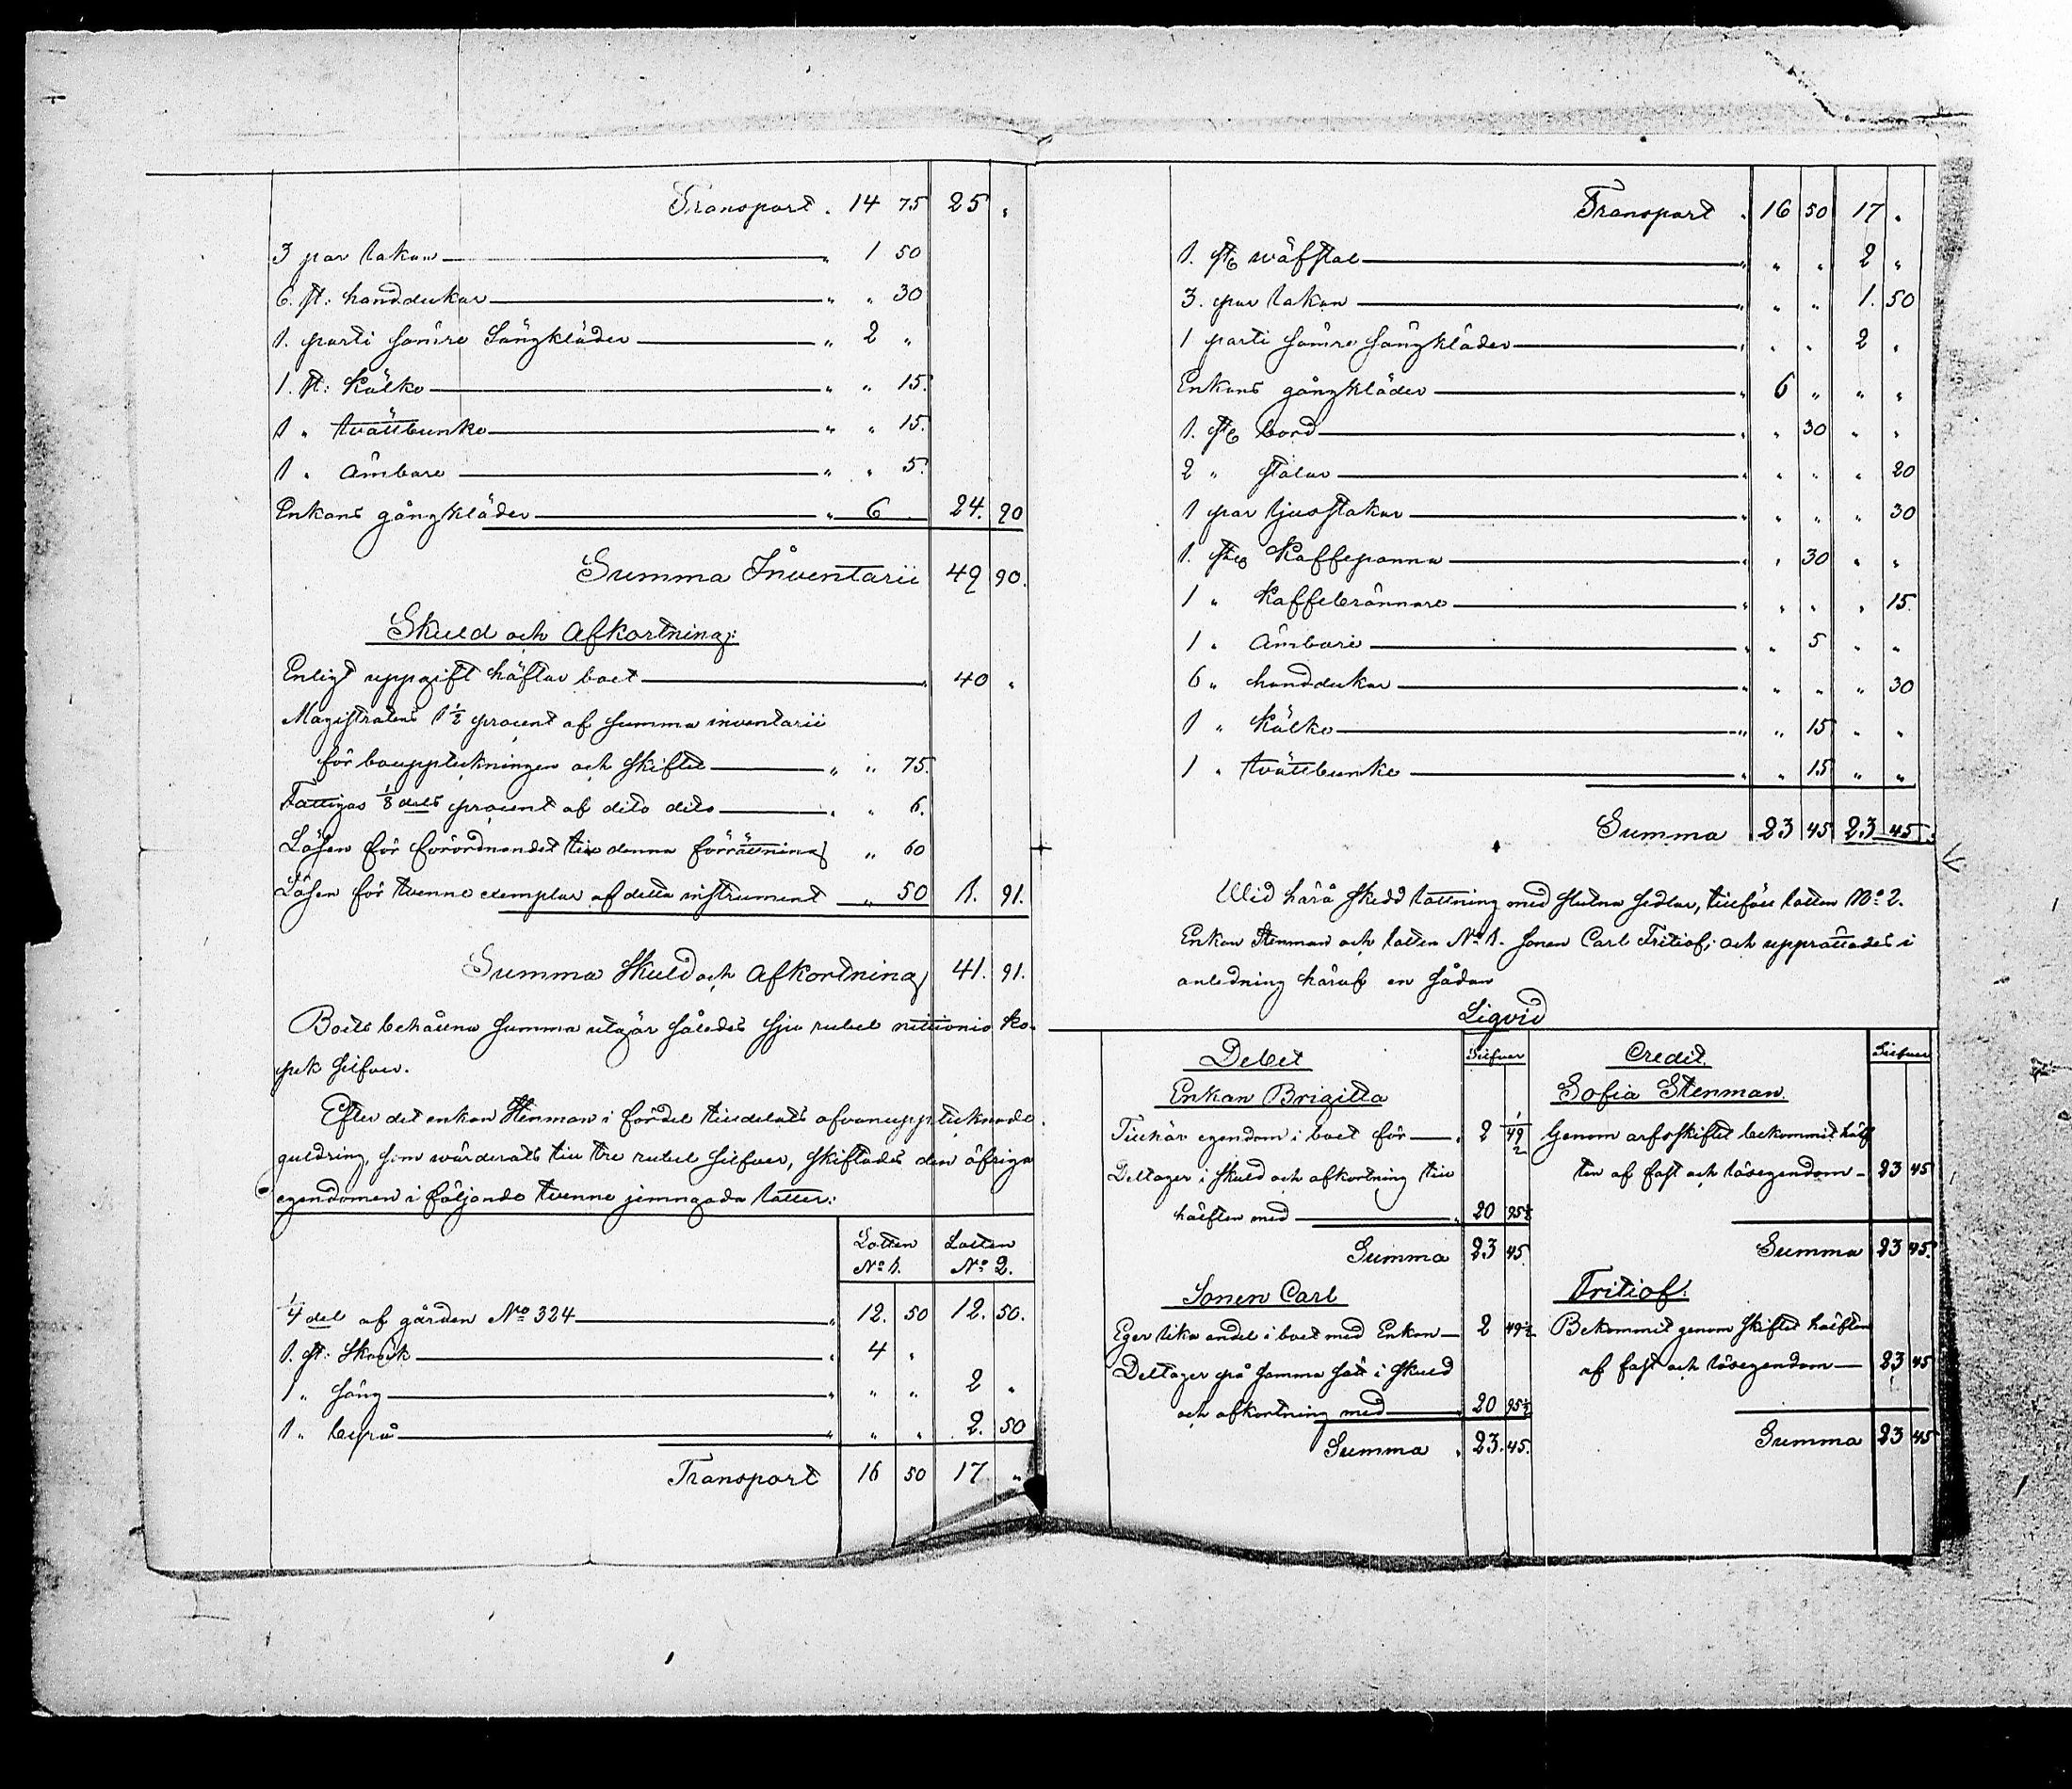 Transport . 14 75 25 "
3 par lakan " 1 50
6. st: handdukar " " 30
1. parti sämre Sängkläder " 2 "
1. st: Kälke " " 15.
1 " tvättbunke " " 15.
1 " Ämbare " " 5.
Enkans gångkläder " 6 24. 90
Summa Inventarii 49 90.
Skuld och Afkortning:
Enligt uppgift häftar boet " 40 "
Magistratens 1 1/2 procent af summa inventarii
för bouppteckningen och skiftet " " 75.
Fattigas 1/8 dels procent af dito dito " " 6.
Lösen för förordnandet till denna förrättning " 60
Lösen för tvenne exemplar af detta instrument " 50 1. 91.
Summa Skuld och Afkortning 41. 91.
Boets behållna summa utgör således sju rubel nittionio ko-
pek silfver.
Efter det enkan Stenman i fördel tilldelats ofvanupptecknade
guldring, som värderats till tre rubel silfver, skiftades den öfriga
egendomen i följande tvenne jemngoda lotter:
Lotten No 1. Lotten No 2.
1/4 del af gården No 324 " 12. 50 12. 50.
1. st: Skänk " 4 "
1 " säng " " " 2 "
1 " byrå " " " 2. 50
Transport 16 50 17 "
Transport . 16 50 17 "
1. st wäfstol " " " 2 "
3. par lakan " " 1. 50
1 parti sämre sängkläder " " " 2 "
Enkans gångkläder " 6 " " "
1. st bord " " 30 " "
2 " stolar " " " " 20
1 par ljusstakar " " " " 30
1. st Kaffepanna " " 30 " "
1 " Kaffebrännare " " " " 15.
1 " Ämbare " " 5 " "
6 " handdukar " " " " 30
1 " Kälke " " 15 " "
1 " tvättbunke " " 15 " "
Summa 23 45 23 45.
Wid härå skedd lottning med slutna sedlar, tillföll lotten No 2.
Enkan Stenman och lotten No 1. sonen Carl Fritiof; och upprättades i
anledning häraf en sådan
Liqvid
Debet Silfver Credit. Silfver
Enkan Brigitta Sofia Stenman.
Tillhör egendom i boet för . 2 49 1/2 Genom arfsskiftet bekommit hälf
Deltager i skuld och afkortning till ten af fast och lösegendom - 23 45
hälften med " 20 95 1/2
Summa 23 45. Summa 23 45.
Sonen Carl Fritiof.
Eger lika andel i boet med Enkan 2 49 1/2 Bekommit genom skiftet hälften
Deltager på samma sätt i skuld af fast och lösegendom 23 45
och afkortning med 20 95 1/2
Summa . 23. 45. Summa 23 45